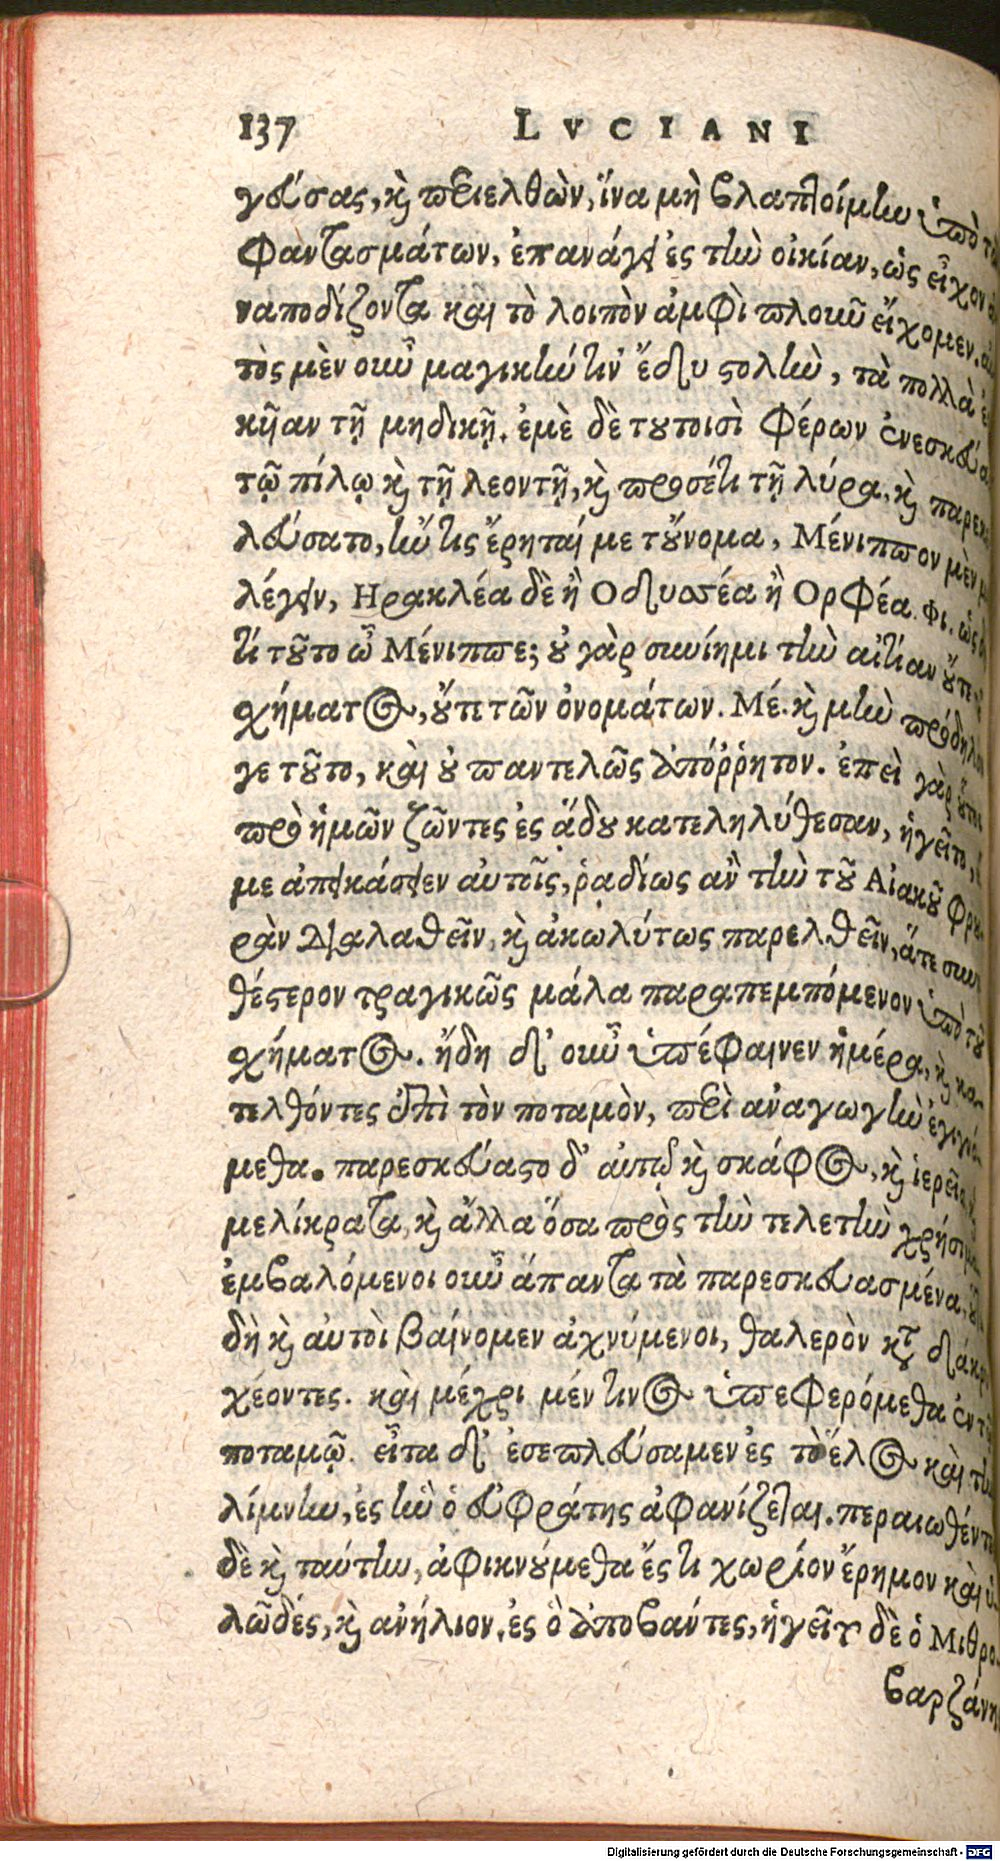 137 LVCIANI
γεύσας, καὶ περιελθὼν, ἵνα μὴ βλαπτοίμην ὑπὸ τῶν
φαντασμάτων, ἐπανάγει ἐς τὴν οἰκίαν, ὡς εἶχον
ναποδίζοντα καὶ τὸ λοιπὸν ἀμφὶ πλοῦν εἴχομεν.
τὸς μὲν οὖν μαγικήν τιν' ἔδυ στολὴν, τὰ πολλὰ
κῆαν τῇ μηδικῇ. ἐμὲ δὲ τουτοισὶ φέρων ἐνεσκεύα
τῷ πίλῳ καὶ τῇ λεοντῇ, καὶ προσέτι τῇ λύρᾳ, καὶ παρεκε
λεύσατο, ἢν τις ἔρηταί με τοὔνομα, Μένιππον μὲν
λέγειν, Ηρακλέα δὲ ἢ Οδυσσέα ἢ Ορφέα. φι. ὡς
τί τοῦτο ὦ Μένιππε; οὐ γὰρ συνίημι τὴν αἰτίαν οὔτε
χήματος, οὔτε τῶν ὀνομάτων. Μέ. καὶ μὴν πρόδηλον
γε τοῦτο, καὶ οὐ παντελῶς ἀπόῤῥητον. ἐπεὶ γὰρ οὗτοι
πρὸ ἡμῶν ζῶντες ἐς ᾅδου κατεληλύθεσαν, ἡγεῖτο,
με ἀπεικάσειεν αὐτοῖς, ῥᾳδίως ἂν τὴν τοῦ Αἰακοῦ φρου
ρὰν διαλαθεῖν, καὶ ἀκωλύτως παρελθεῖν, ἅτε συνη
θέστερον τραγικῶς μάλα παραπεμπόμενον ὑπὸ τοῦ
χήματος. ἤδη δ' οὖν ὑπέφαινεν ἡμέρα, καὶ κα
τελθόντες ἐπὶ τὸν ποταμὸν, περὶ ἀναγωγὴν ἐγιγνό
μεθα. παρεσκεύαστο δ' αὐτῷ καὶ σκάφος, καὶ ἱερεῖα,
μελίκρατα, καὶ ἄλλα ὅσα πρὸς τὴν τελετὴν χρήσιμα
ἐμβαλόμενοι οὖν ἅπαντα τὰ παρεσκευασμένα,
δὴ καὶ αὐτοὶ βαίνομεν ἀχνύμενοι, θαλερὸν κατὰ δάκρυ
χέοντες. καὶ μέχρι μέν τινος ὑπεφερόμεθα ἐν τῷ
ποταμῷ. εἶτα δ' ἐσεπλεύσαμεν ἐς τὸ ἕλος καὶ τὴν
λίμνην, ἐς ἣν ὁ εὐφράτης ἀφανίζεται. περαιωθέντες
δὲ καὶ ταύτην, ἀφικνούμεθα ἔς τι χωρίον ἔρημον καὶ ὑ
λῶδές, καὶ ἀνήλιον, ἐς ὃ ἀποβάντες, ἡγεῖτο δὲ ὁ Μιθρο
βαρζάνης
Digitalisierung gefördert durch die Deutsche Forschungsgemeinschaft - DFG